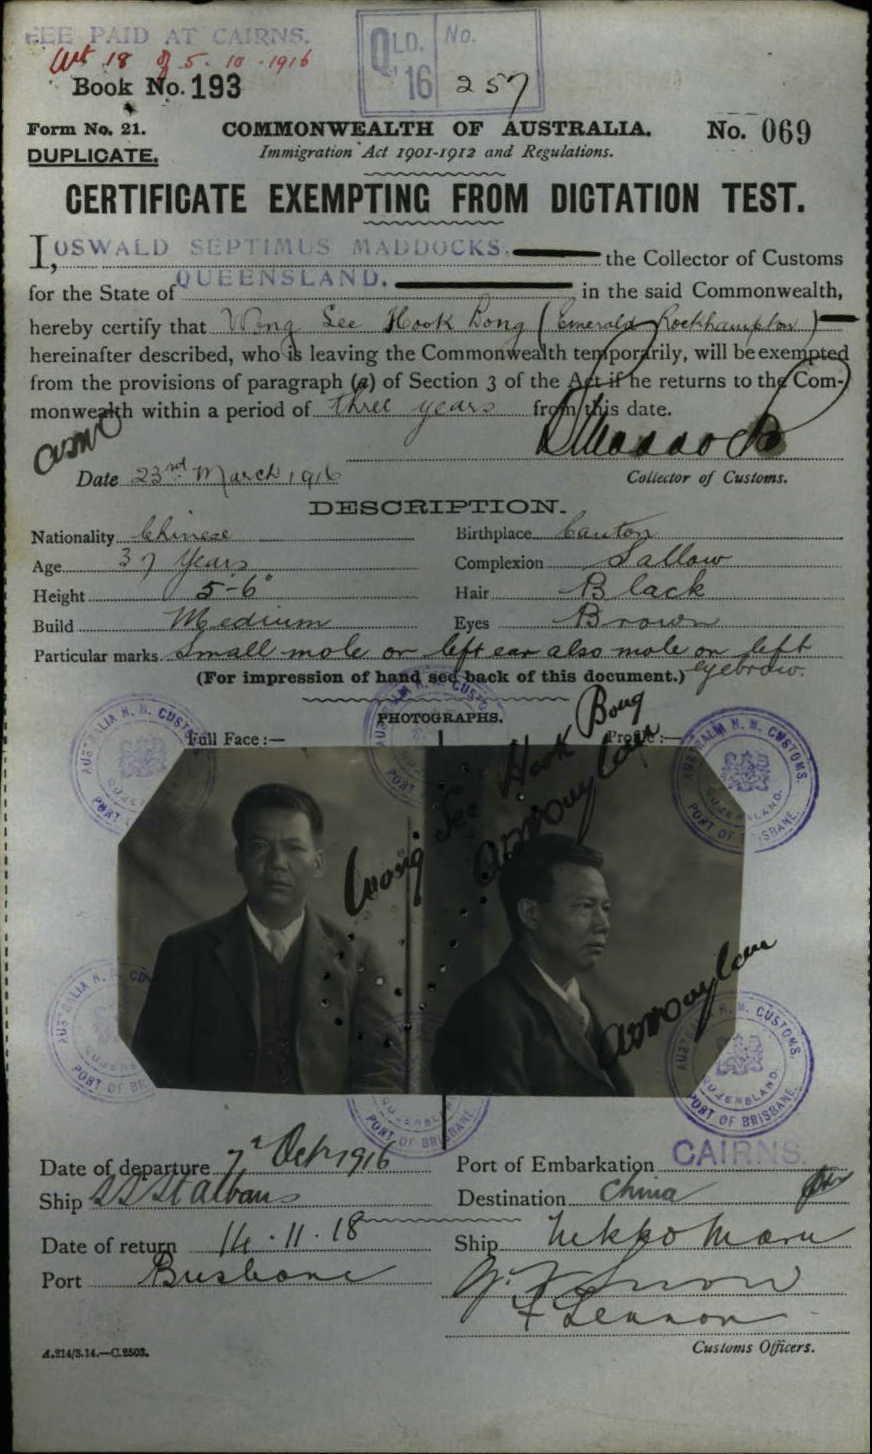 FEE PAID AT CAIRNS.
Art 18 of 5.10.1916
QLD. No.
16 257
Book No. 193
Form No. 21.
DUPLICATE.
COMMONWEALTH OF AUSTRALIA.
No. 069
Immigration Act 1901-1912 and Regulations.
CERTIFICATE EXEMPTING FROM DICTATION TEST.
I, OSWALD SEPTIMUS MADDOCKS. the Collector of Customs
for the State of QUEENSLAND. in the said Commonwealth,
hereby certify that Wong See Hook Bong (Emerald Rockhampton)
hereinafter described, who is leaving the Commonwealth temporarily, will be exempted
from the provisions of paragraph (a) of Section 3 of the Act if he returns to the Com-
monwealth within a period of three years from this date.
Maddocks
Date 23rd March 1916 Collector of Customs.
DESCRIPTION.
Nationality Chinese Birthplace Canton
Age 37 years Complexion Sallow
Height 5'-6" Hair Black
Build Medium Eyes Brown
Particular marks. Small mole on left ear also mole on left
eyebrow.
(For impression of hand see back of this document.)
PHOTOGRAPHS.
Full Face :— Profile :—
Wong See Hook Bong
AUSTRALIA H. M. CUSTOMS.
QUEENSLAND.
PORT OF BRISBANE.
Date of departure 7th Oct 1916 Port of Embarkation CAIRNS.
Ship SS St Albans Destination China
Date of return 14.11.18 Ship Nikko Maru
Port Brisbane
F Lennon
Customs Officers.
A.214/3.14.—C.2503.